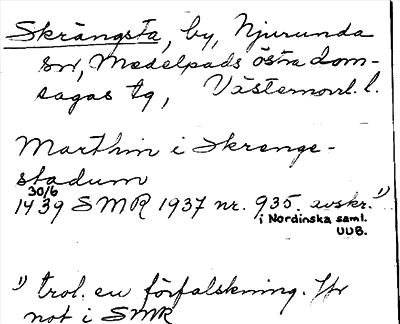 Skrängsta, by, Njurunda
sn, Medelpads östra dom-
sagas tg, Västernorrl. l.
Marthin i Skrenge-
stadum
30/6
1439 SMR 1937 nr. 935. avskr. 1)
i Nordinska saml.
UUB.
1) trol. en förfalskning. Jfr
not i SMR